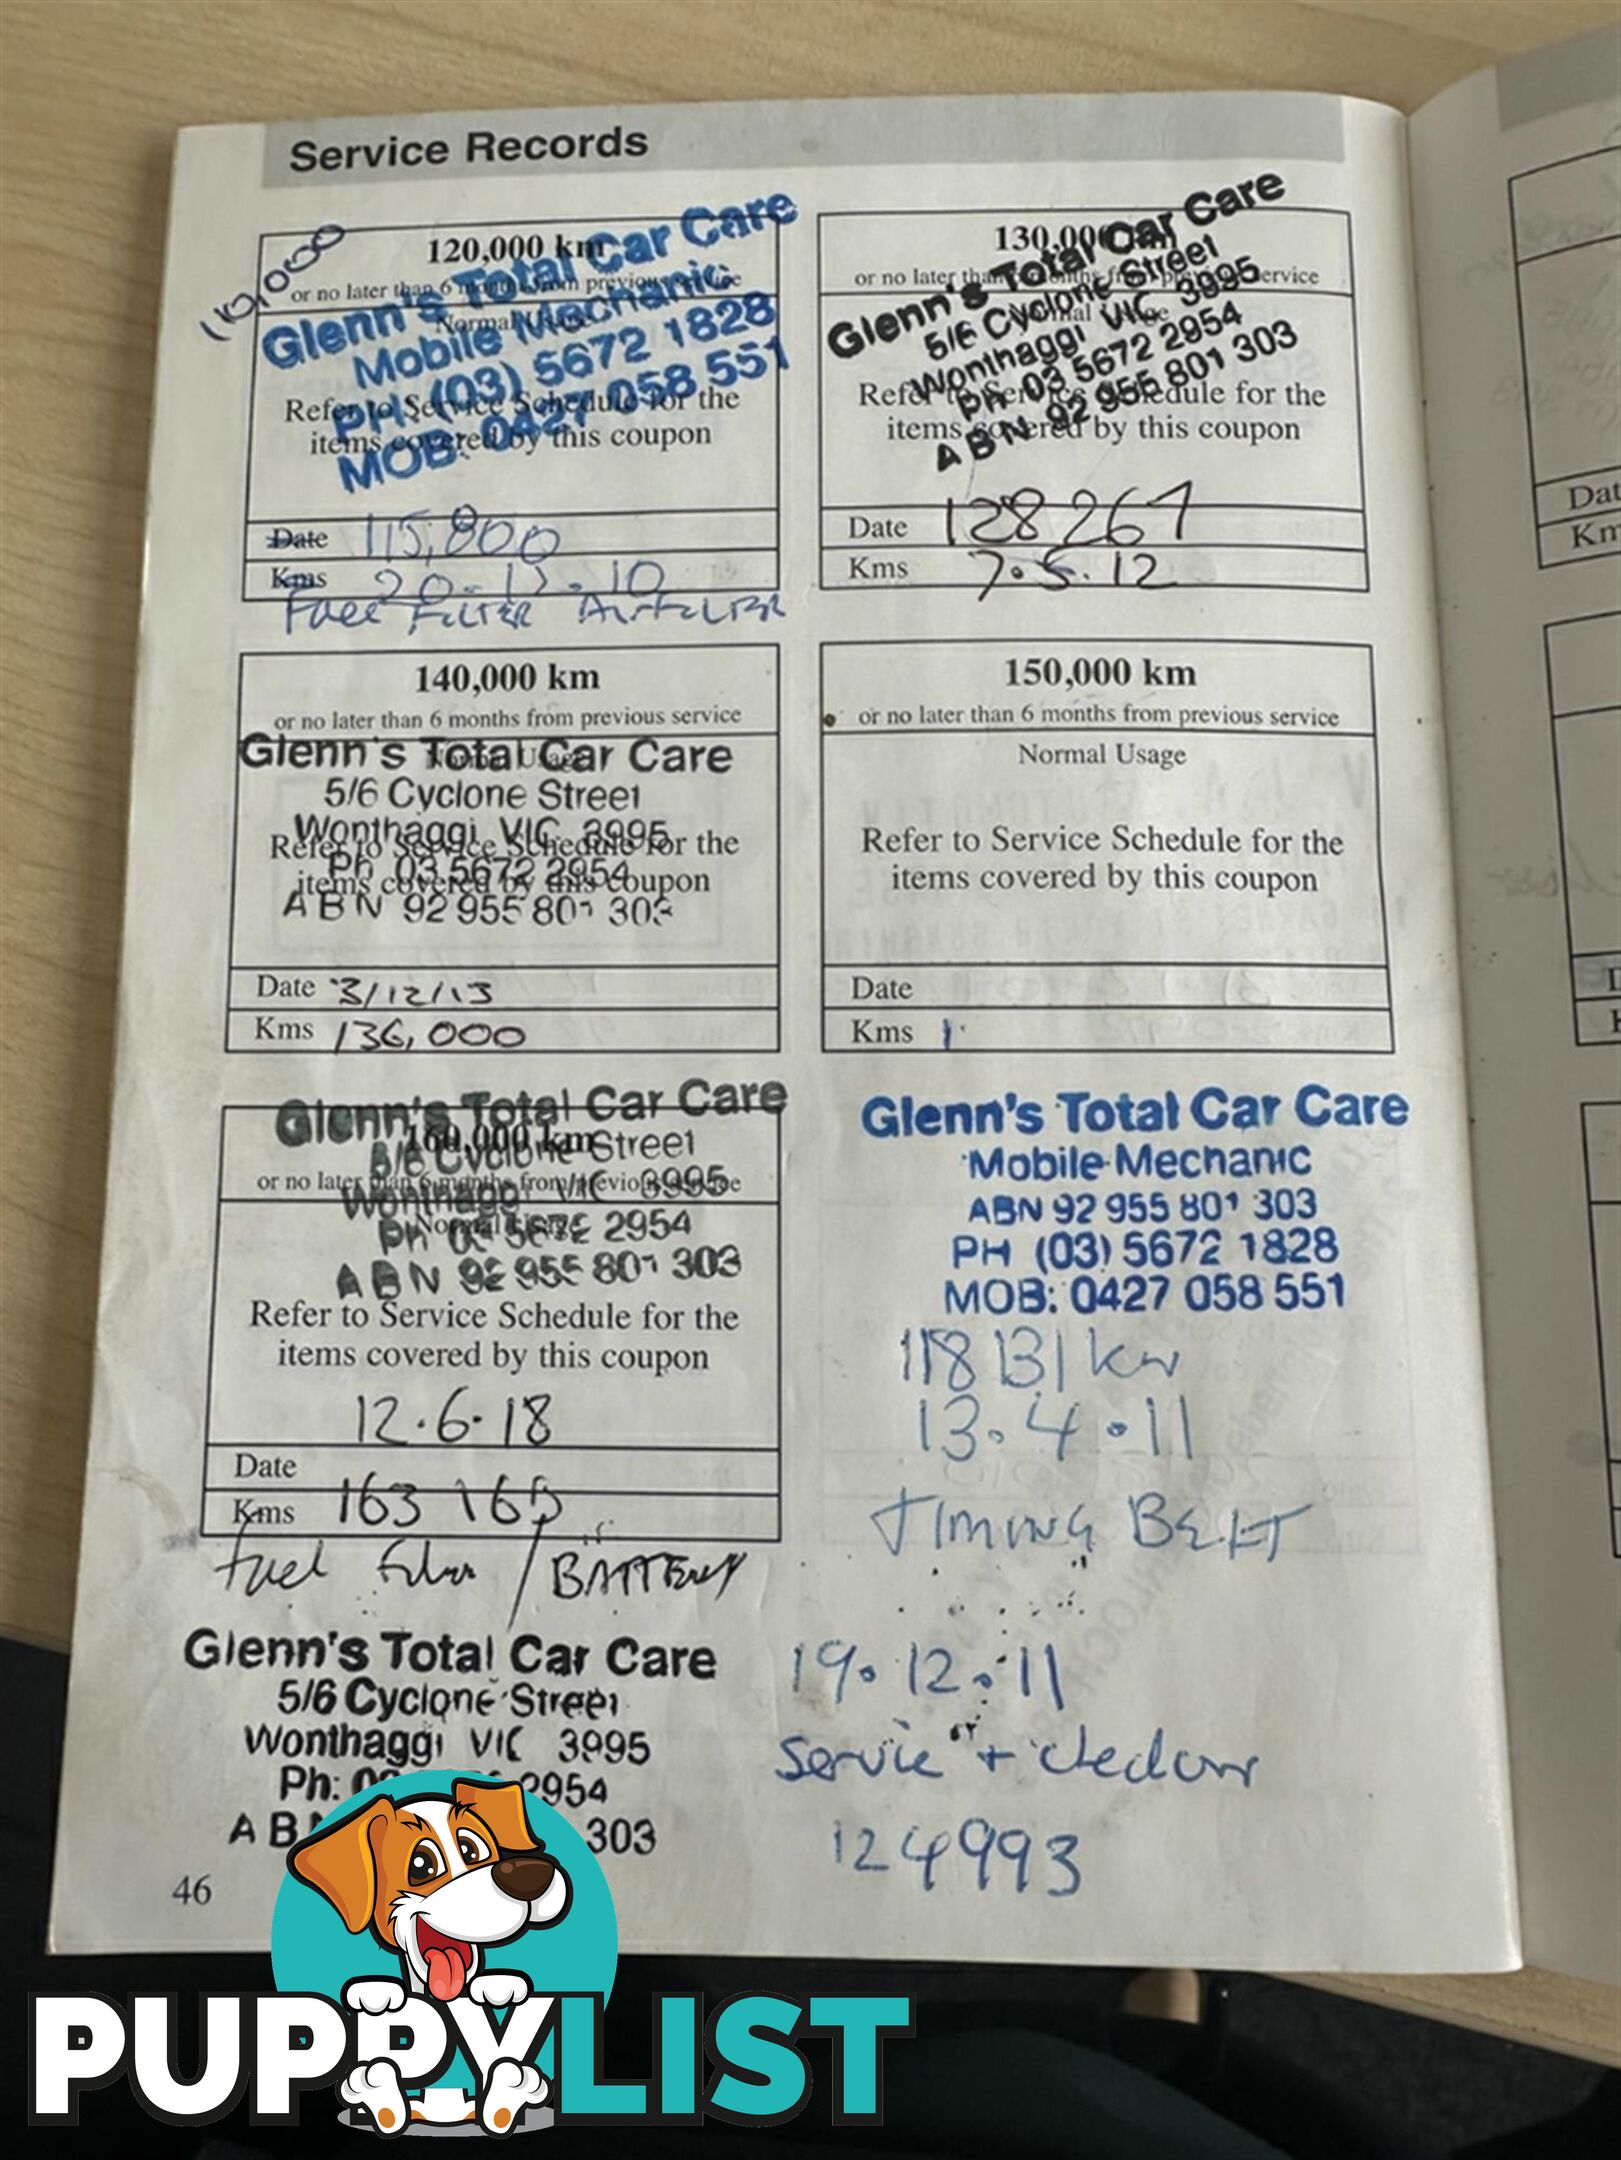 Service Records
110,000
120,000 km
or no later than 6 months from previous service
Normal Usage
Glenn's Total Car Care
Mobile Mechanic
PH: (03) 5672 1828
MOB: 0427 058 551
Refer to Service Schedule for the
items covered by this coupon
Date 115,800
Kms 20.12.10
Fuel Filter Air Filter
130,000 km
or no later than 6 months from previous service
Normal Usage
Glenn's Total Car Care
5/6 Cyclone Street
Wonthaggi VIC 3995
Ph 03 5672 2954
A B N 92 955 801 303
Refer to Service Schedule for the
items covered by this coupon
Date 128267
Kms 7.5.12
140,000 km
or no later than 6 months from previous service
Normal Usage
Glenn's Total Car Care
5/6 Cyclone Street
Wonthaggi VIC 3995
Ph 03 5672 2954
A B N 92 955 801 303
Refer to Service Schedule for the
items covered by this coupon
Date 3/12/13
Kms 136,000
150,000 km
or no later than 6 months from previous service
Normal Usage
Refer to Service Schedule for the
items covered by this coupon
Date
Kms
160,000 km
or no later than 6 months from previous service
Normal Usage
Glenn's Total Car Care
5/6 Cyclone Street
Wonthaggi VIC 3995
Ph 03 5672 2954
A B N 92 955 801 303
Refer to Service Schedule for the
items covered by this coupon
12.6.18
Date
Kms 163 165
Fuel Filter / BATTERY
Glenn's Total Car Care
5/6 Cyclone Street
Wonthaggi VIC 3995
Ph: 2954
303
Glenn's Total Car Care
Mobile Mechanic
ABN 92 955 801 303
PH (03) 5672 1828
MOB: 0427 058 551
118131 km
13.4.11
TIMING BELT
19.12.11
Service + checkover
124993
46
Dat
Km
PUPPYLIST